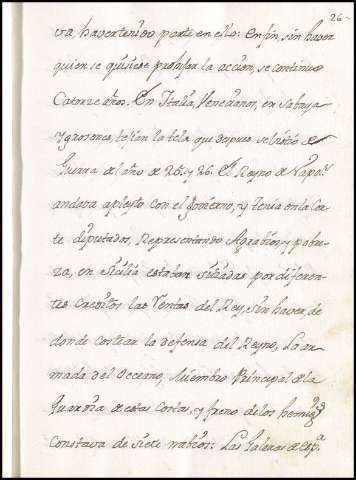 26
va, haver tenido parte en ello: en fin, sin haver
quien se quisiese prohijar la accion, se continuo
Catorze años. En Italia, Venecianos, en Saboya
y grosones, tejian la tela que despues se
Guerra el año de 25. y 26. El Reyno de Napoˢ
andava a pleyto con el Govierno, y tenia en la Cor-
te diputados, Representando Agrabios, y pobre-
za, en Sicilia estaban situadas por diferen-
tes creditos las Ventas del Rey, sin haver, de
donde costear la defensa del Reyno, La ar-
mada del Occeano, Miembro Principal de la
Guardia de estas Costas, y freno de los
Constava de siete nabios: Las Galeras de Espᵃ